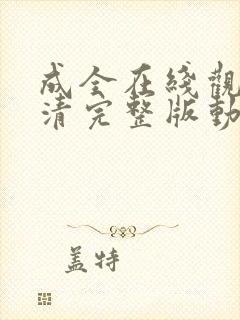 成全在綫觀
清完整版動
盖特